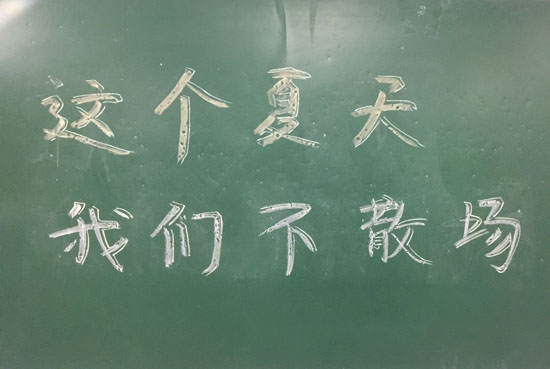 这个夏天
我们不散场